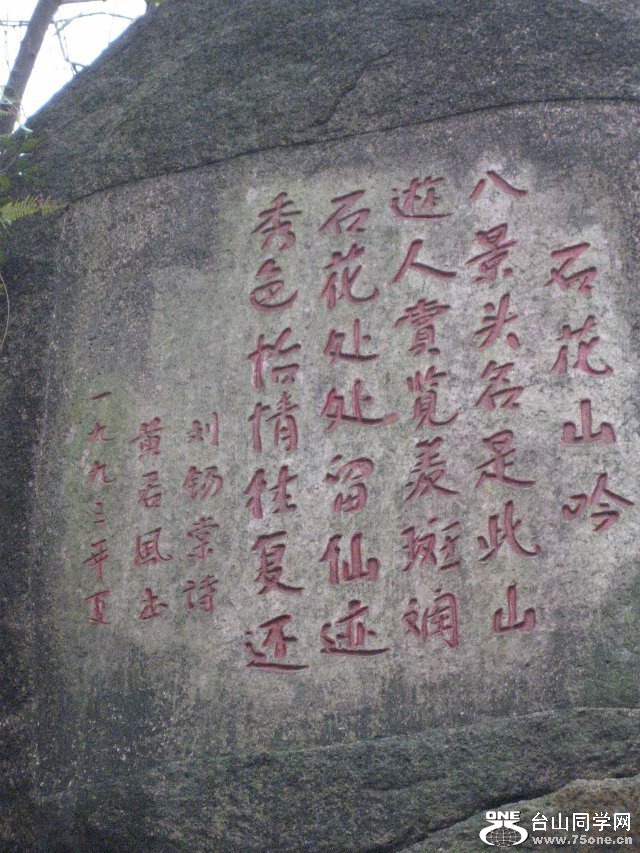 石花山吟
八景头名是此山
遊人賞览羡斑斓
石花处处留仙迹
秀色怡情往复还
刘锡棠诗
黄君风书
一九九三年夏
ONE
台山同学网
www.75one.cn